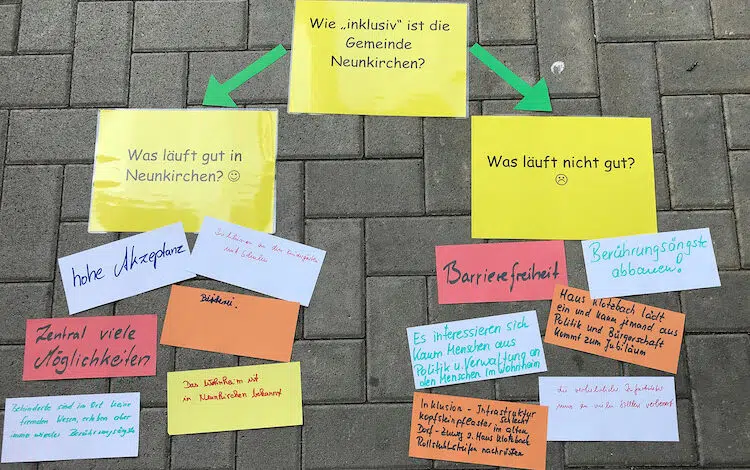 Wie „inklusiv“ ist die
Gemeinde
Neunkirchen?
Was läuft gut in
Neunkirchen? ☺
hohe Akzeptanz
Inklusion in den Kindergärten
und Schulen
Zentral viele
Möglichkeiten
Bücherei.
Das Wohnheim ist
in Neunkirchen bekannt
Behinderte sind im Ort keine
fremden Wesen, erleben aber
immer wieder Berührungsängste
Was läuft nicht gut?
☹
Barrierefreiheit
Berührungsängste
abbauen!
Es interessieren sich
kaum Menschen aus
Politik u. Verwaltung an
den Menschen im Wohnheim
Haus Klotzbach lädt
ein und kaum jemand aus
Politik und Bürgerschaft
kommt zum Jubiläum
Inklusion - Infrastruktur
schlecht
Kopfsteinpflaster, im alten
Dorf - Zuweg z. Haus Klotzbach
Rollstuhlstreifen nachrüsten
die
zu viele